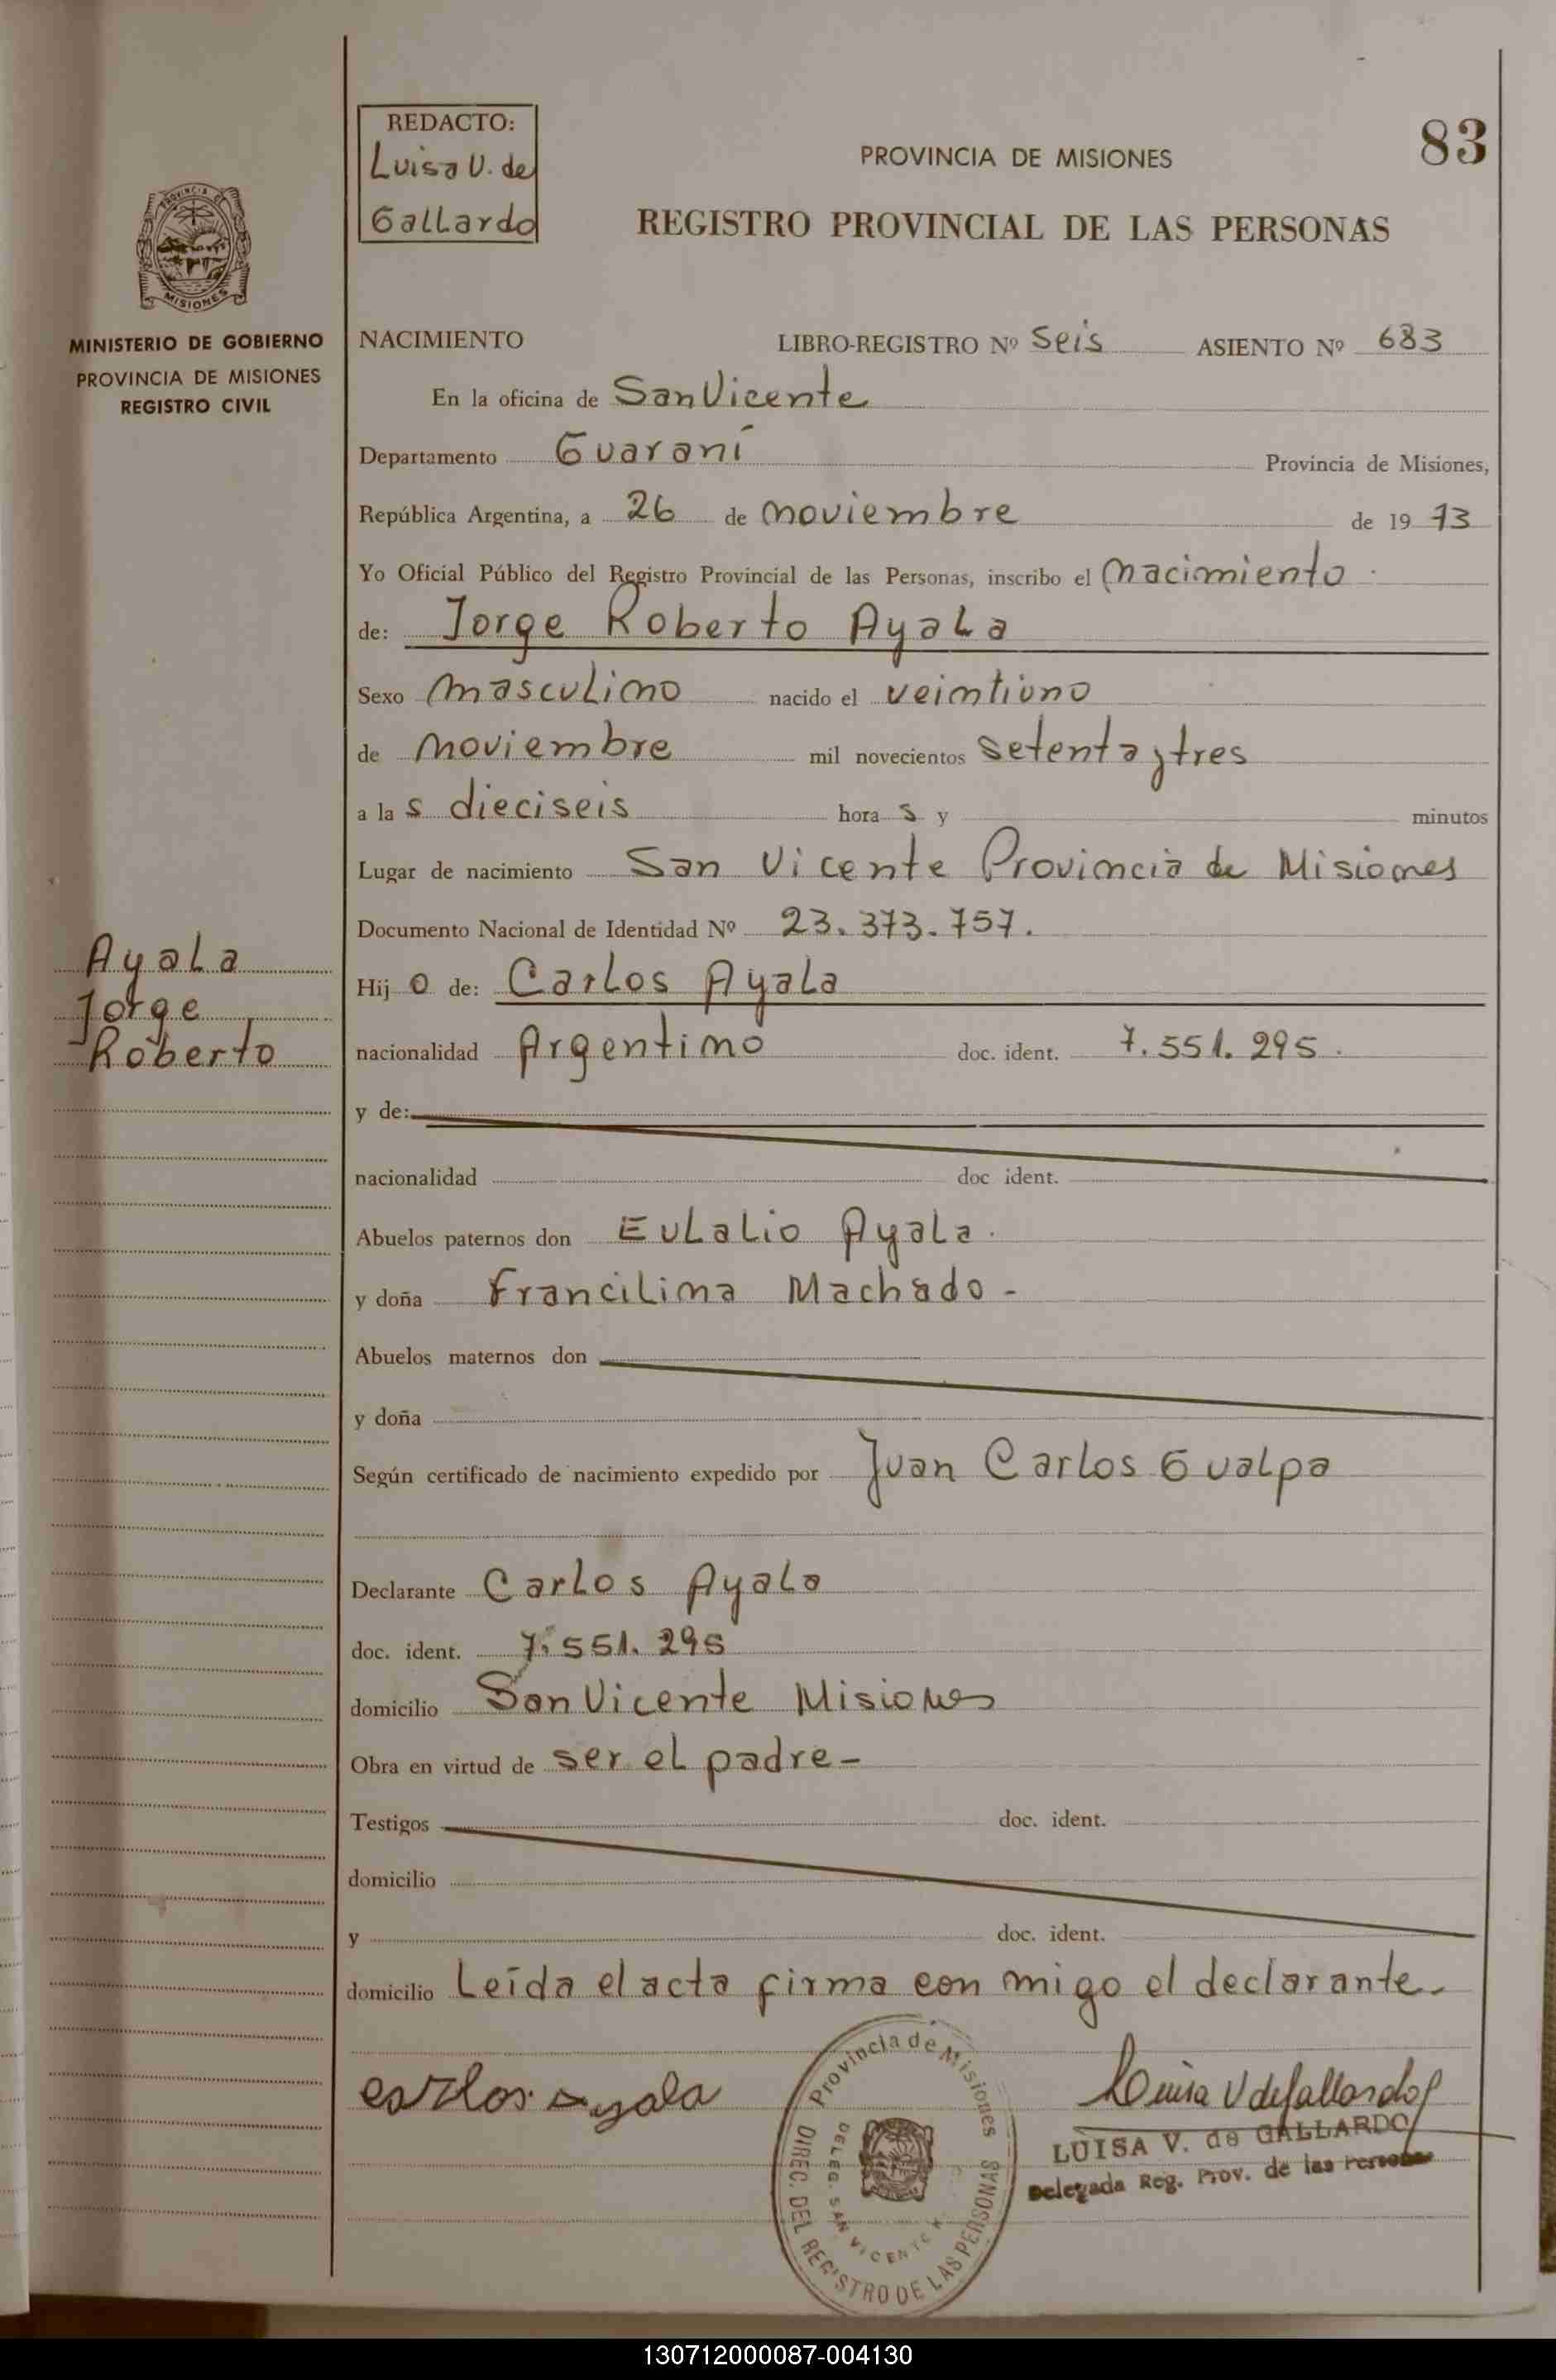 REDACTO:
Luisa V. de
Gallardo
83
PROVINCIA DE MISIONES
REGISTRO PROVINCIAL DE LAS PERSONAS
PROVINCIA
MISIONES
MINISTERIO DE GOBIERNO
PROVINCIA DE MISIONES
REGISTRO CIVIL
NACIMIENTO LIBRO-REGISTRO Nº Seis ASIENTO Nº 683
En la oficina de San Vicente
Departamento Guaraní Provincia de Misiones,
República Argentina, a 26 de noviembre de 19 73
Yo Oficial Público del Registro Provincial de las Personas, inscribo el nacimiento
de: Jorge Roberto Ayala
Sexo masculino nacido el veintiuno
de noviembre mil novecientos setenta y tres
a la s dieciseis hora s y minutos
Lugar de nacimiento San Vicente Provincia de Misiones
Documento Nacional de Identidad Nº 23.373.757.
Ayala
Jorge
Roberto
Hij o de: Carlos Ayala
nacionalidad Argentino doc. ident. 7.551.295.
y de:
nacionalidad doc ident.
Abuelos paternos don Eulalio Ayala.
y doña Francilina Machado -
Abuelos maternos don
y doña
Según certificado de nacimiento expedido por Juan Carlos Gualpa
Declarante Carlos Ayala
doc. ident. 7.551.295
domicilio San Vicente Misiones
Obra en virtud de ser el padre -
Testigos doc. ident.
domicilio
y doc. ident.
domicilio Leída el acta firma con migo el declarante.
carlos ayala
Luisa V de Gallardo
LUISA V. de GALLARDO
Delegada Reg. Prov. de las Personas
Provincia de Misiones
DIREC. DEL REGISTRO DE LAS PERSONAS
DELEG. SAN VICENTE
130712000087-004130